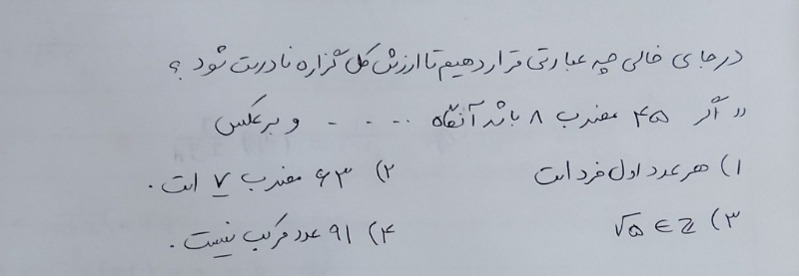 در جای خالی چه عبارتی قرار دهیم تا ارزش کل گزاره نادرست شود ؟
« اگر ۴۵ مضرب ۸ باشد آنگاه .... و برعکس
۱) هر عدد اول فرد است ۲) ۶۳ مضرب ۷ است .
۳) √۵ ∈ ℤ ۴) ۹۱ عدد مرکب نیست .